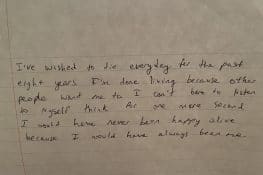 I've wished to die everyday for the past
eight years I'm done living because other
people want me to I can't bare to listen
to myself think for one more second
I would have never been happy alive
because I would have always been me